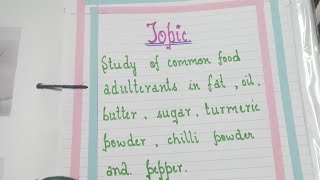 Topic
Study of common food
adulterants in fat , oil ,
butter , sugar , turmeric
powder , chilli powder
and pepper.